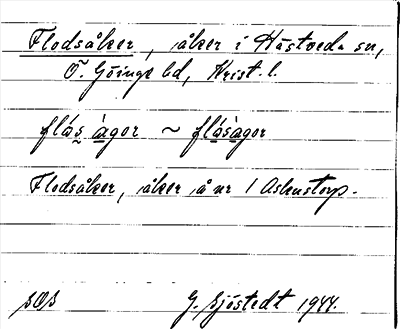 Flodsåker, åker i Hästveda sn,
Ö. Göinge hd, Krist. l.
flásàgor ~ flásàgor
Flodsåker, åker å nr 1 Askustorp.
G. Sjöstedt 1944.